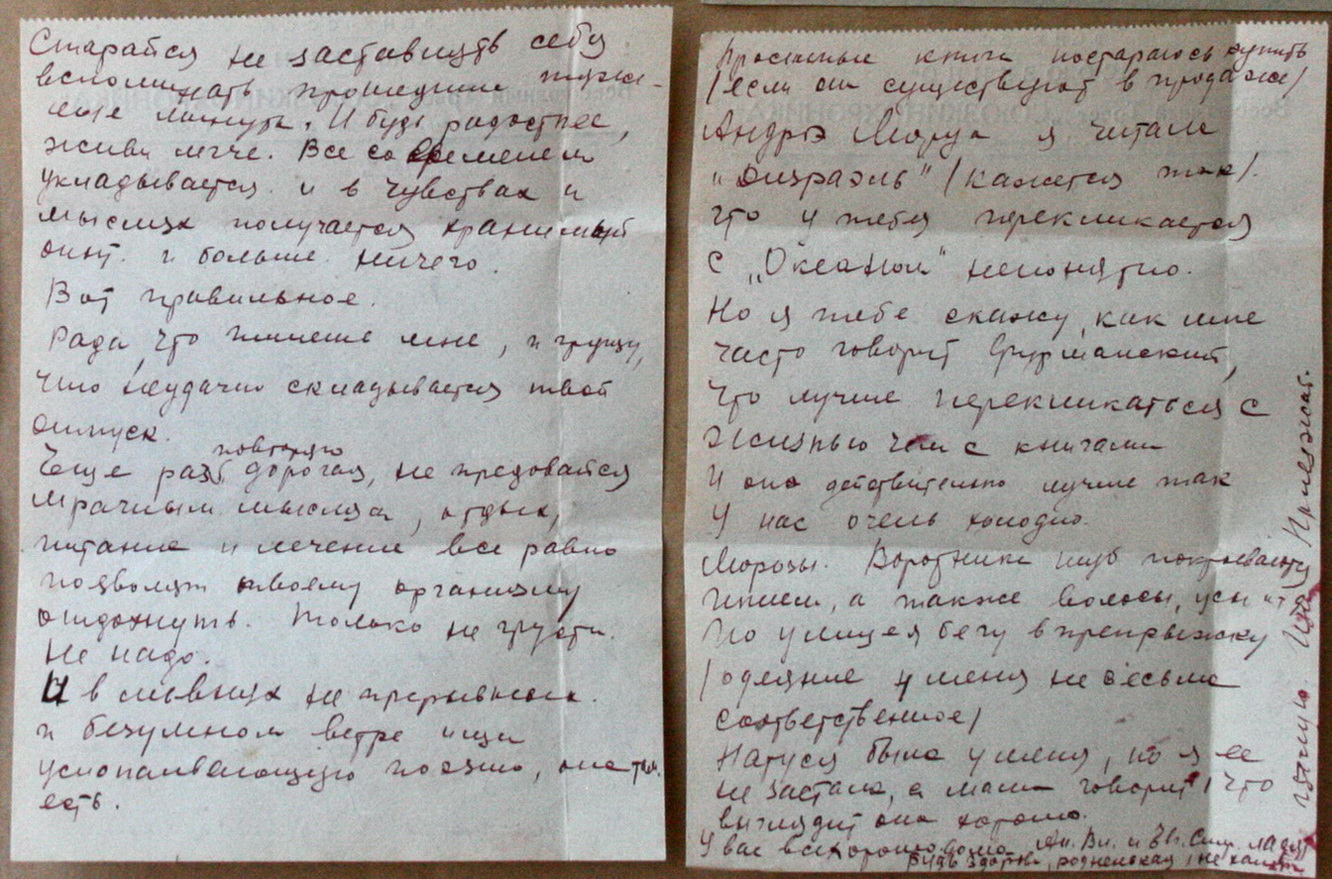 Старайся не заставлять себя
вспоминать прошедшие тяже-
лые минуты. И будь радостнее,
живи легче. Все со временем
укладывается и в чувствах и
мыслях получается хранимый
опыт. и больше ничего.
Вот правильное.
Рада, что пишешь мне, и грущу,
что неудачно складывается твой
отпуск.
повторяю
Еще раз дорогая, не предавайся
мрачным мыслям, отдых,
питание и лечение все равно
позволят твоему организму
отдохнуть. Только не грусти.
Не надо.
И в ливнях не прерывных
и безумном ветре ищи
успокаивающую поэзию, она там
есть.
книги постараюсь купить
/если они существуют в продаже/
Андрэ Моруа я читала
"Дизраэль" /кажется так/.
Что у тебя перекликается
с "Океаном" непонятно.
Но я тебе скажу, как мне
часто говорит Фурманский,
что лучше перекликаться с
жизнью чем с книгами
И оно действительно лучше так
У нас очень холодно.
Морозы. Воротники шуб покрываются
инеем, а также волосы, усы и т
По улице я бегу в препрыжку
/одеяние у меня не весьма
соответственное/
Натуся была у меня, но я ее
не застала, а мама говорит, что
выглядит она хорошо.
У вас все хорошо дома. Ан. Вл. и Ев.
Будь здорова, родненькая, не
целую. Приезжай.